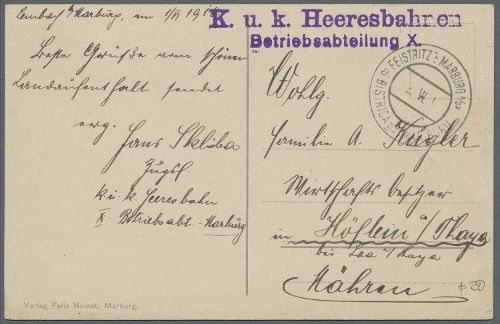 Lembach b/Marburg, am 1/VI 19
Beste Grüße vom schönen
Landaufenthalt sendet
erg.
Hans Skloba
Zugsf.
k. u. k. Heeresbahn
X. Betriebsabt. Marburg
Verlag Felix Nowak, Marburg.
K. u. k. Heeresbahnen
Betriebsabteilung X.
FEISTRITZ b. MARBURG a/D
BISTRICA
VI
Wohlg.
Familie A. Kugler
Wirtschaftsbesitzer
in Höflein a/Thaya
bei Laa a/Thaya
Mähren